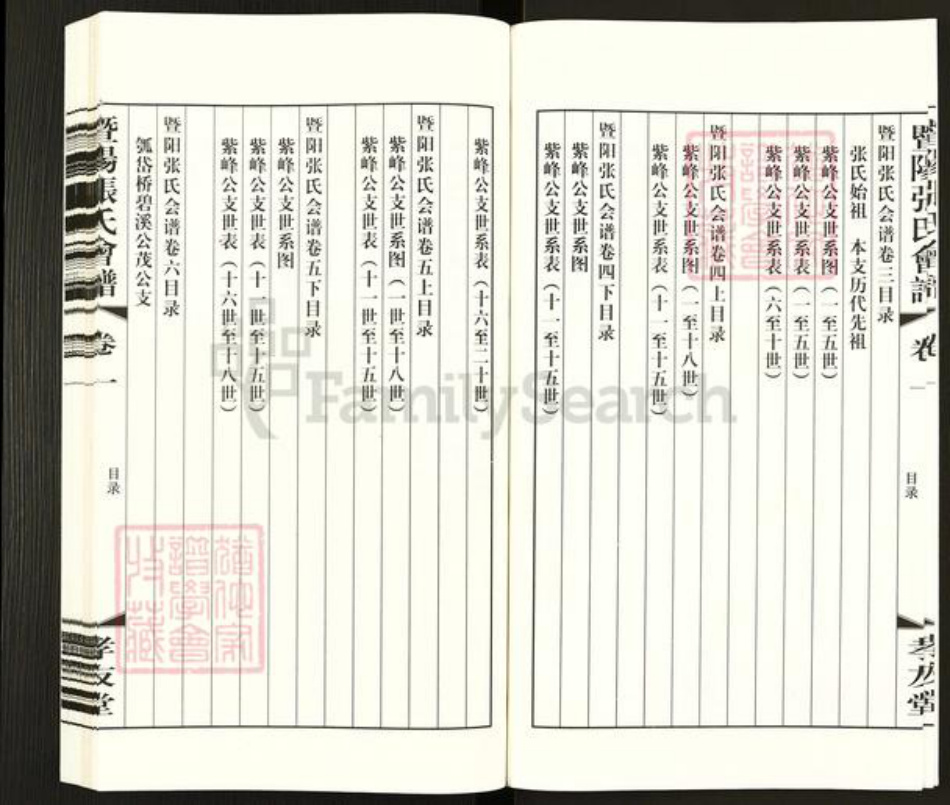 暨陽張氏會譜
卷
一
目录
孝友堂
暨阳张氏会谱卷三目录
张氏始祖　本支历代先祖
紫峰公支世系图（一至五世）
紫峰公支世系表（一至五世）
紫峰公支世系表（六至十世）
暨阳张氏会谱卷四上目录
紫峰公支世系图（一至十八世）
紫峰公支世系表（十一至十五世）
暨阳张氏会谱卷四下目录
紫峰公支世系图
紫峰公支世系表（十一至十五世）
紫峰公支世系表（十六至二十世）
暨阳张氏会谱卷五上目录
紫峰公支世系图（一世至十八世）
紫峰公支世表（十一世至十五世）
暨阳张氏会谱卷五下目录
紫峰公支世系图
紫峰公支世表（十一世至十五世）
紫峰公支世表（十六世至十八世）
暨阳张氏会谱卷六目录
瓠岱桥碧溪公茂公支
暨陽張氏會譜
卷一
目录
孝友堂
FamilySearch